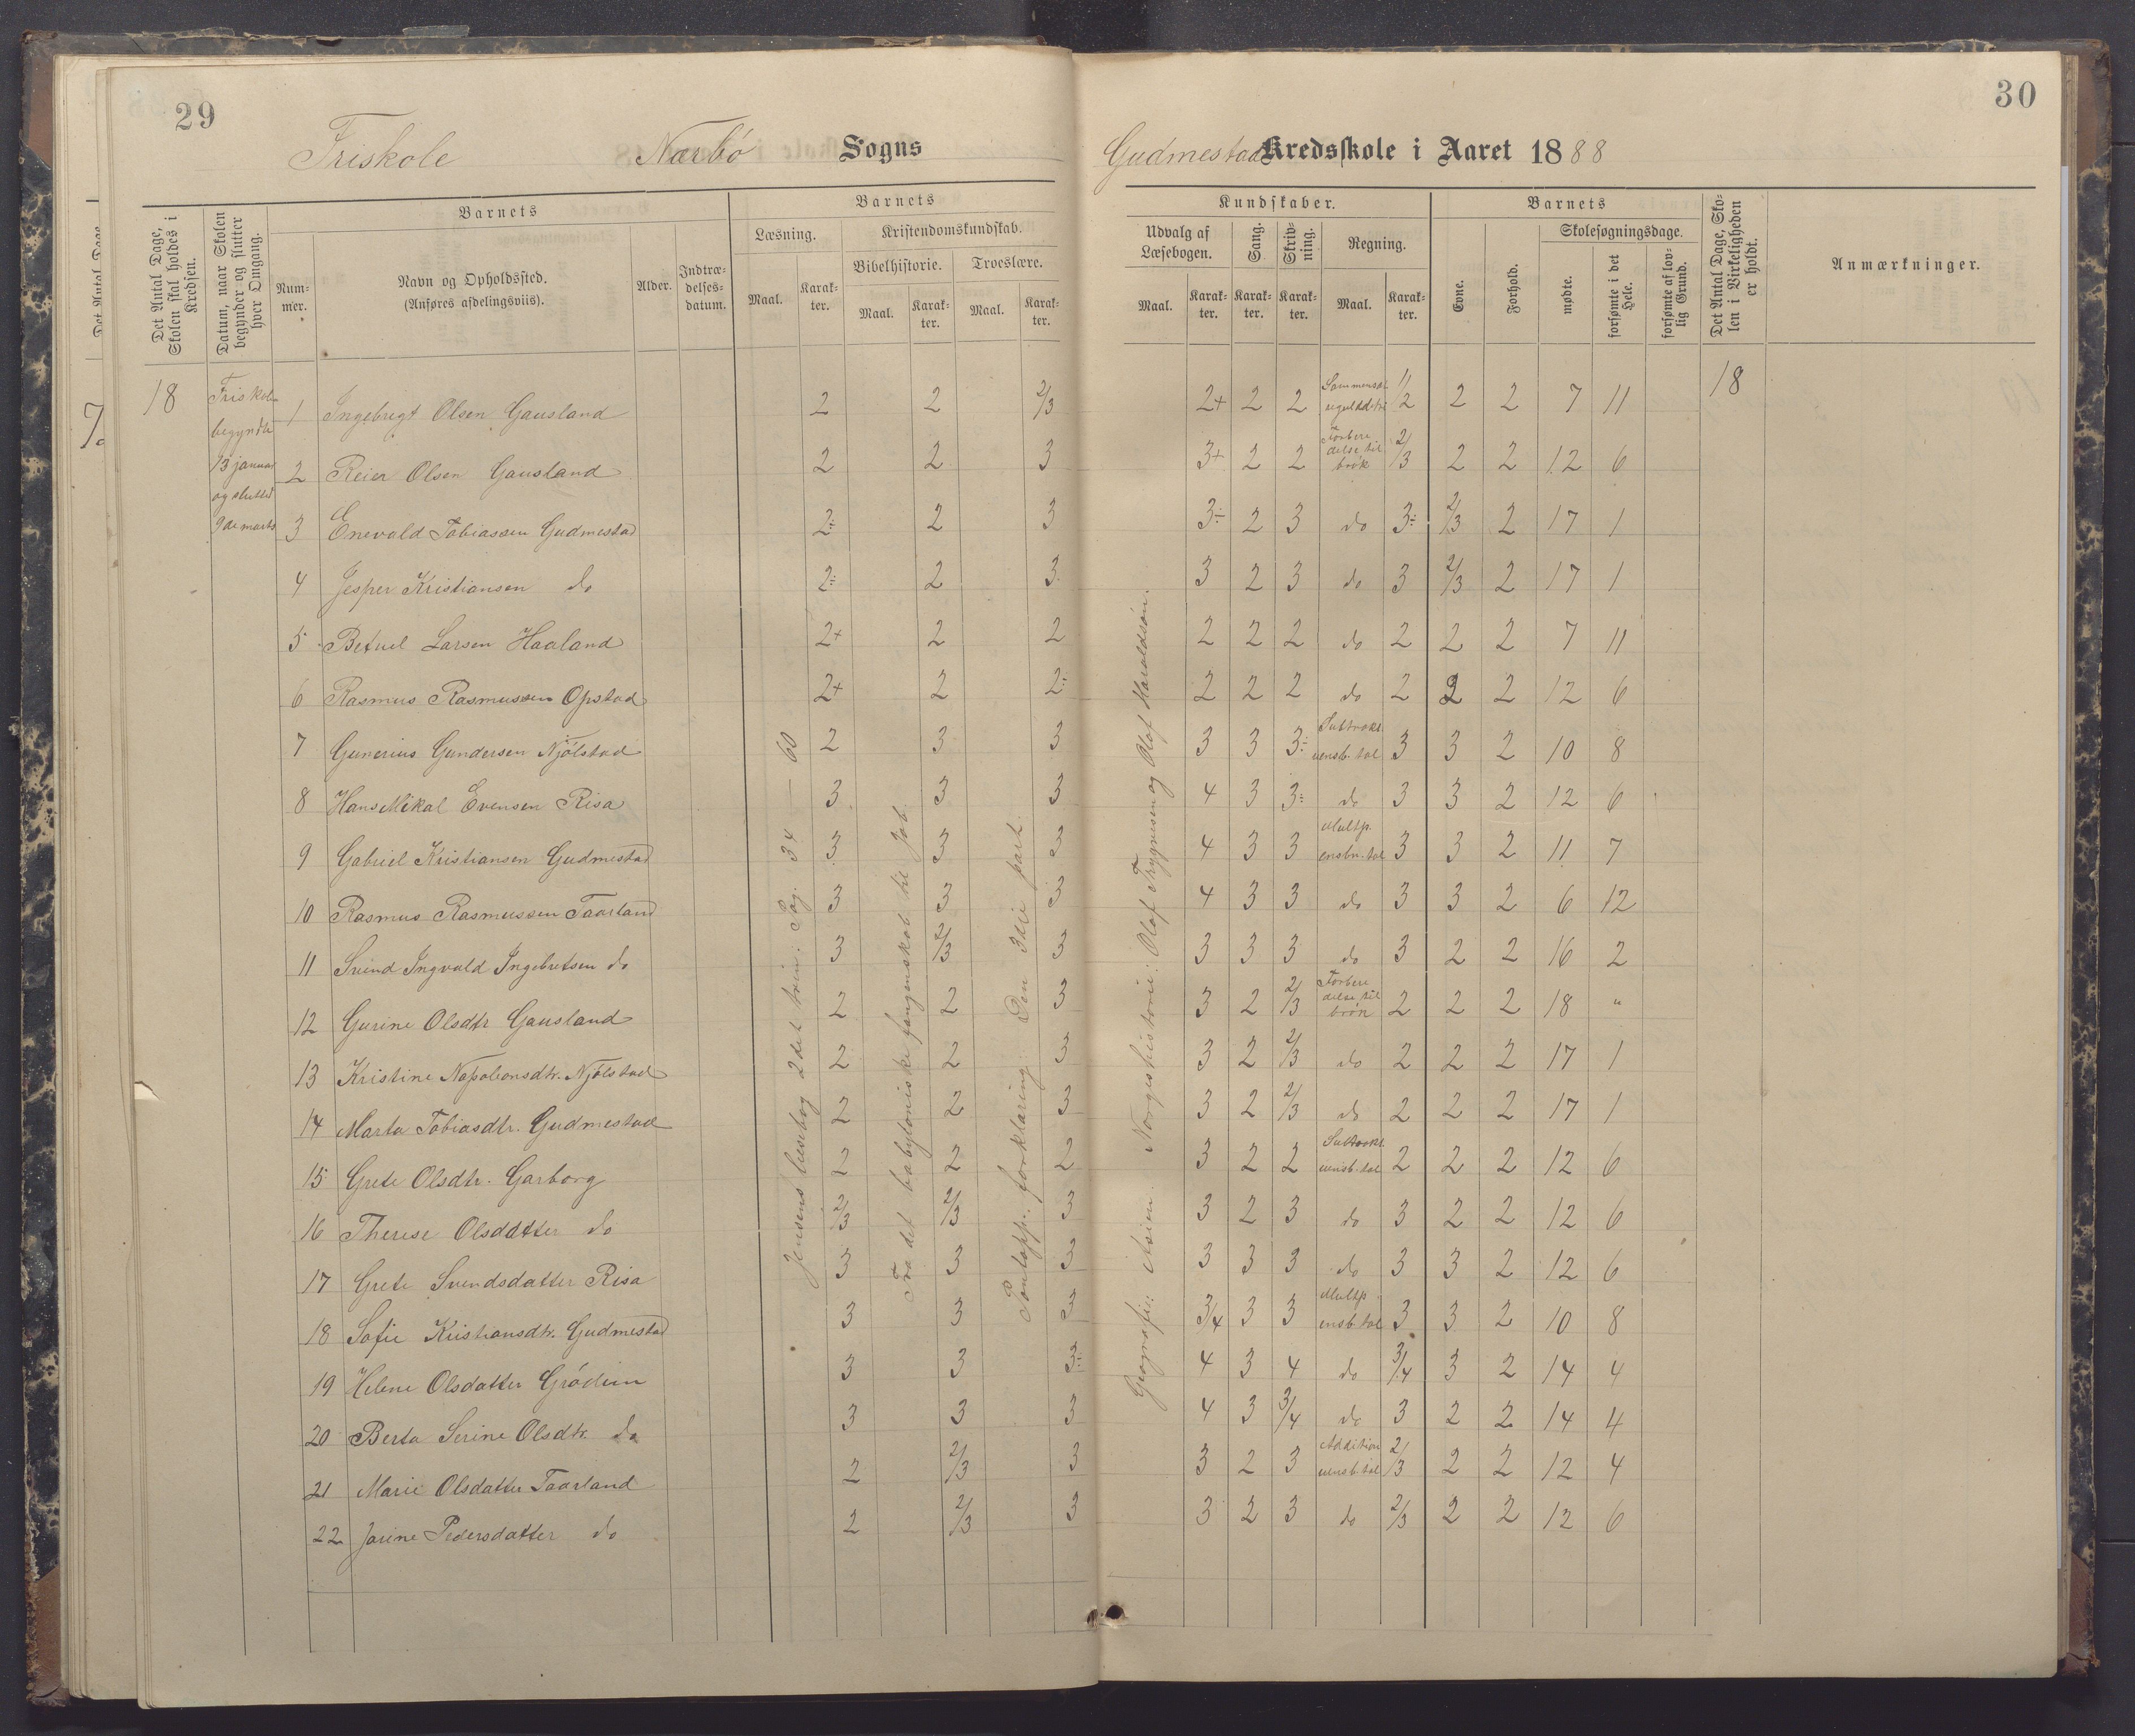 29
Friskole Nærbø Sogns
Det Antal Dage, Skolen skal holdes i Kredsen.
Datum, naar Skolen begynder og slutter hver Omgang.
Barnets
Num-
mer.
Navn og Opholdssted.
(Anføres afdelingsviis).
Alder.
Indtræ-
delses-
datum.
Barnets
Læsning.
Kristendomskundskab.
Bibelhistorie. Troeslære.
Maal. Karak-
ter.
Maal. Karak-
ter.
Maal. Karak-
ter.
18
Friskolen
begyndte
13 januar
og sluttet
9de marts
1 Ingebrigt Olsen Gausland 2 2 2/3
2 Reier Olsen Gausland 2 2 3
3 Enevald Tobiassen Gudmestad 2÷ 2 3
4 Jesper Kristiansen do 2÷ 2 3
5 Betuel Larsen Haaland 2+ 2 2
6 Rasmus Rasmussen Opstad 2+ 2 2÷
7 Gunerius Gundersen Njölstad 2 3 3
8 Hans Mikal Evensen Risa 3 3 3
9 Gabriel Kristiansen Gudmestad 3 3 3
10 Rasmus Rasmussen Taarland 3 3 3
11 Svend Ingvald Ingebretsen do 3 2/3 3
12 Gurine Olsdtr Gausland 2 2 3
13 Kristine Napolionsdtr. Njölstad 2 2 3
14 Marta Tobiasdtr. Gudmestad 2 2 3
15 Grete Olsdtr. Garborg 2 2 2
16 Therese Olsdatter do 2/3 2/3 3
17 Grete Svendsdatter Risa 3 3 3
18 Sofie Kristiansdtr. Gudmestad 3 3 3
19 Helene Olsdatter Grödem 3 3 3÷
20 Berta Serine Olsdtr. do 3 3 3
21 Marie Olsdatter Taarland 2 2/3 3
22 Jorine Pedersdatter do 2 2/3 3
Jensens læsebog 2det trin: Pag. 34 — 60
Fra det babyloniske fangenskab til Job
Pontopp. forklaring: Den 3die part.
30
Gudmestad Kredsskole i Aaret 1888
Kundskaber.
Udvalg af
Læsebogen.
Sang.
Skriv-
ning.
Regning.
Maal. Karak-
ter.
Karak-
ter.
Karak-
ter.
Maal. Karak-
ter.
Barnets
Evne.
Forhold.
Skolesøgningsdage.
mødte.
forsømte i det Hele.
forsømte af lov-
lig Grund.
Det Antal Dage, Sko-
len i Virkeligheden
er holdt.
Anmærkninger.
2+ 2 2 Sammensat reguladetri 1/2 2 2 7 11 18
3+ 2 2 Forberedelse til brök 2/3 2 2 12 6
3÷ 2 3 do 3÷ 2/3 2 17 1
3 2 3 do 3 2/3 2 17 1
2 2 2 do 2 2 2 7 11
2 2 2 do 2 2 2 12 6
3 3 3÷ Subtrakt. uensb. tal 3 3 2 10 8
4 3 3÷ do 3 3 2 12 6
4 3 3 Multp. ensbn. tal 3 3 2 11 7
4 3 3 do 3 3 2 6 12
3 3 3 do 3 2 2 16 2
3 2 2/3 Forberedelse til brök 2 2 2 18 "
3 2 2/3 do 2 2 2 17 1
3 2 2/3 do 2 2 2 17 1
3 2 2 Subtrakt. uensb. tal 2 2 2 12 6
3 2 3 do 3 2 2 12 6
3 3 3 do 3 3 2 12 6
3/4 3 3 Multp ensb. tal 3 3 2 10 8
4 3 4 do 3/4 3 2 14 4
4 3 3/4 do 3 2 2 14 4
3 2 3 Addition uensb. tal 2/3 2 2 12 4
3 2 3 do 2/3 2 2 12 6
Geografi: Asien. Norgeshistorie: Olaf Trygvesen og Olaf Haraldsön.